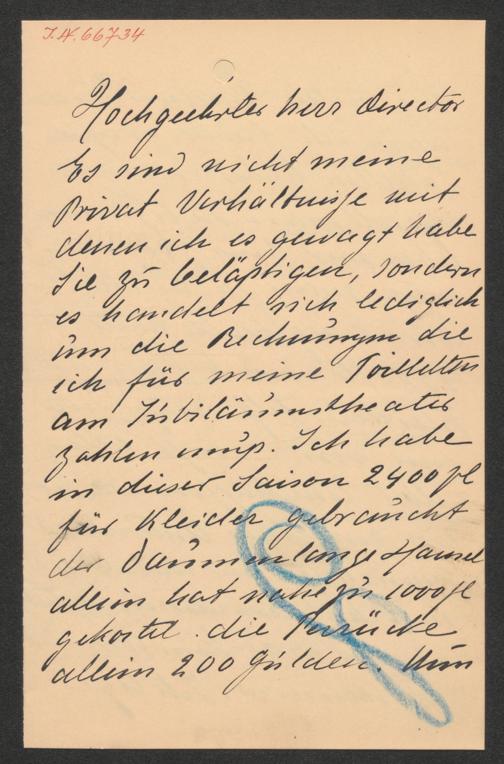 J.N. 66734
Hochgeehrter Herr Director
Es sind nicht meine
Privat Verhältnisse mit
denen ich es gewagt habe
Sie zu belästigen, sondern
es handelt sich lediglich
um die Rechnungen die
ich für meine Toilletten
am Jubiläumstheater
zahlen muß. Ich habe
in dieser Saison 2400 fl
für Kleider gebraucht
der Daumenlange Hansel
allein hat nahezu 1000 fl
gekostet. die Perücke
allein 200 Gulden. Nun